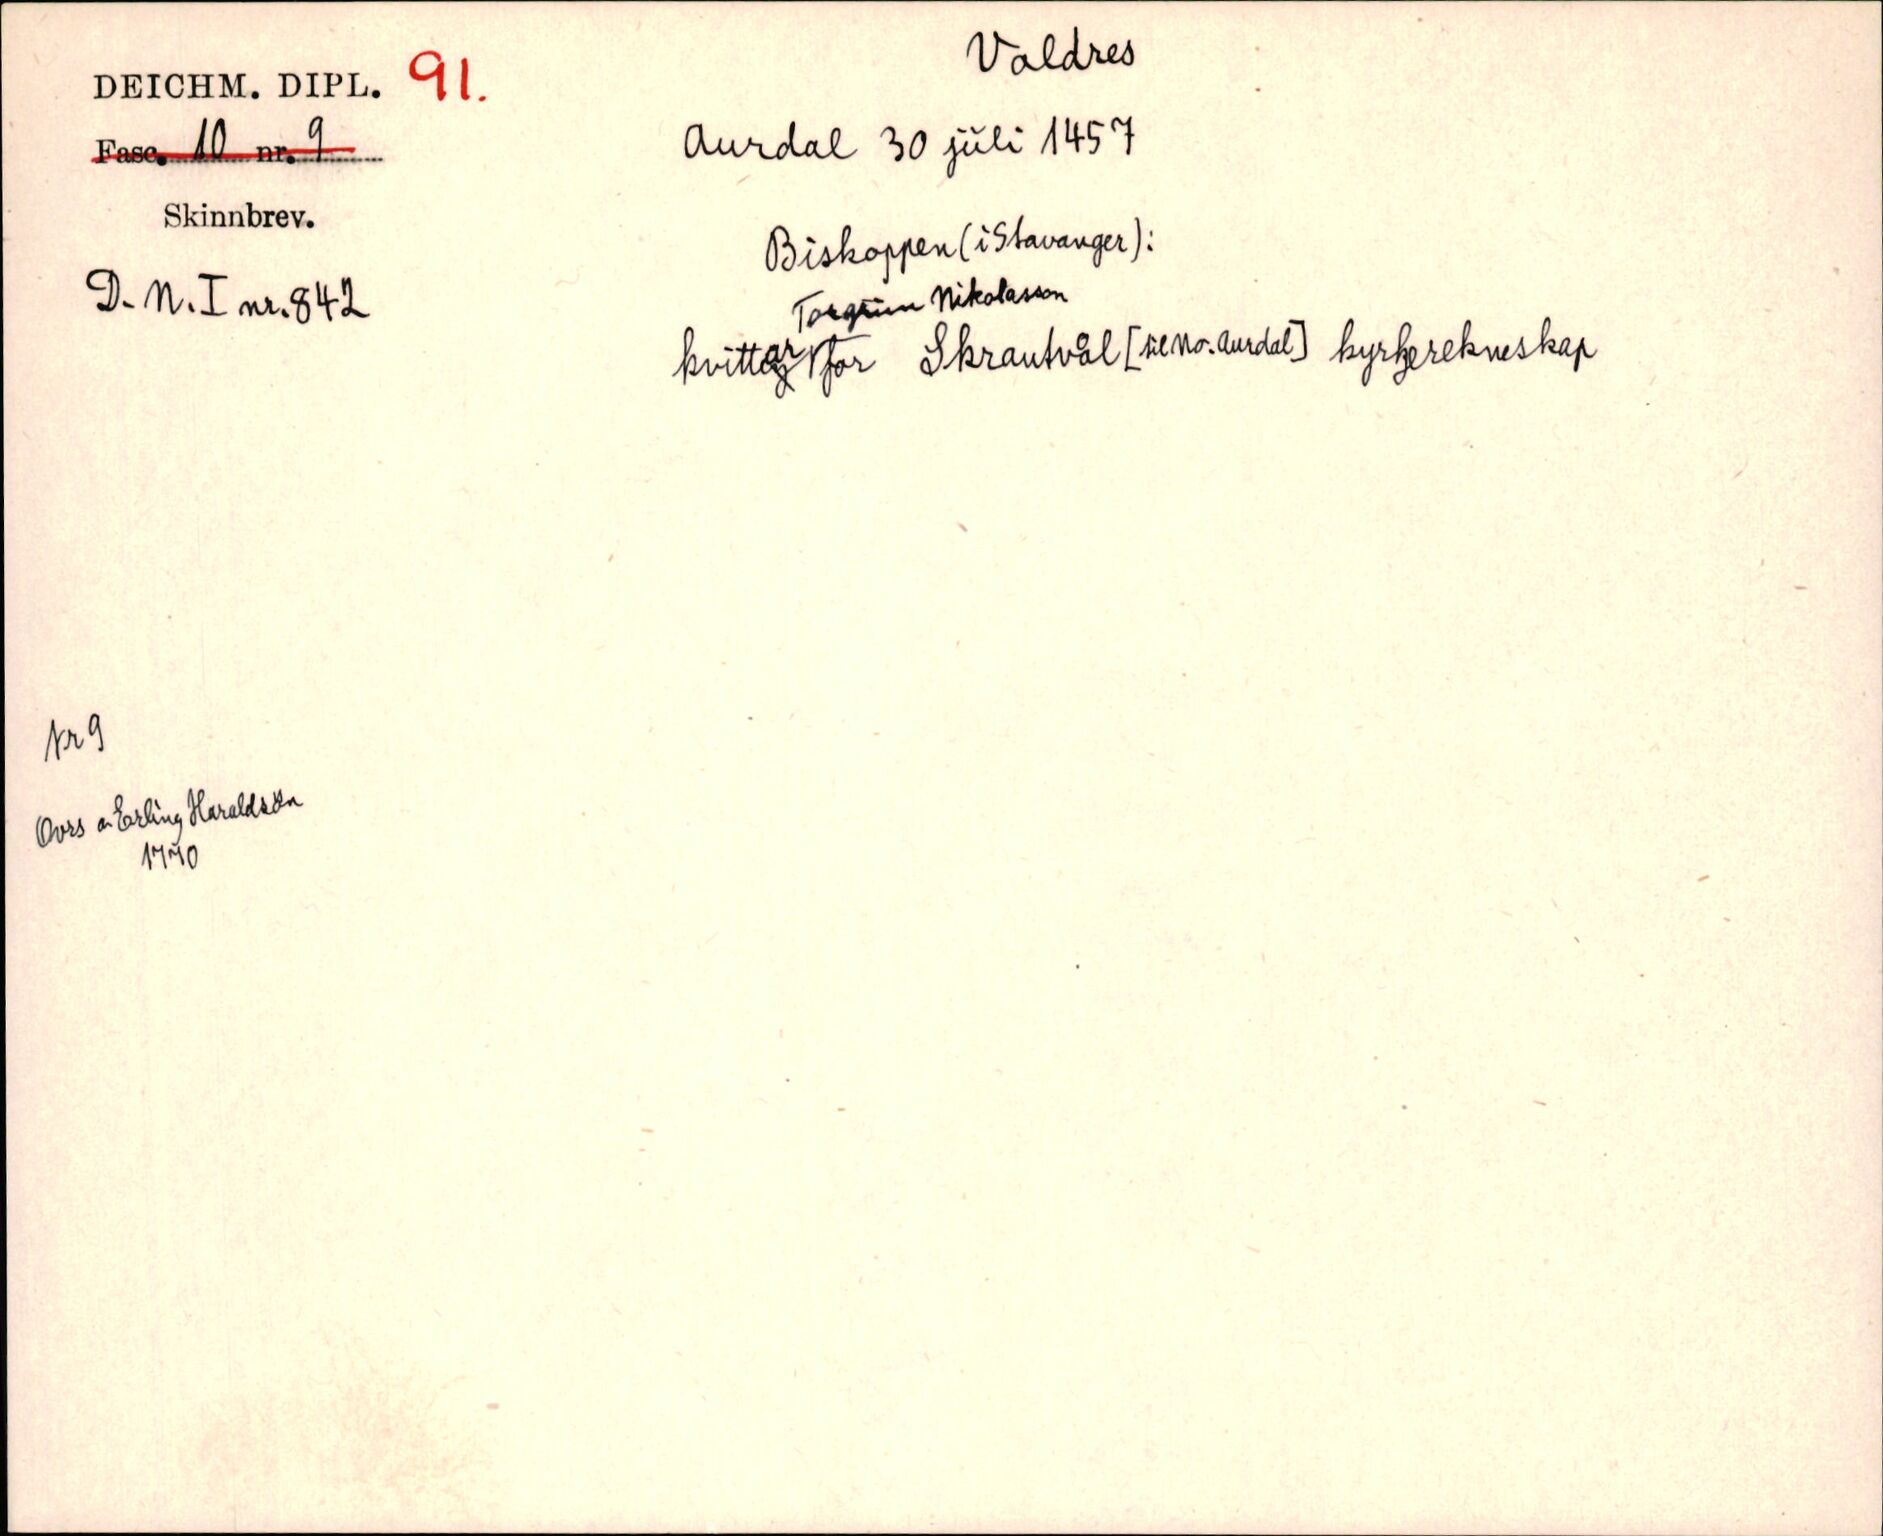 Valdres
DEICHM. DIPL. 91.
Fasc. 10 nr. 9
Aurdal 30 juli 1457
Skinnbrev.
Biskoppen (i Stavanger):
D. N. I nr. 842
Torgrim Nikolasson
kvittar for Skrautvål [til No. Aurdal] kyrkjerekneskap
Nr 9
Avrs a Erling Haraldsøn
1770